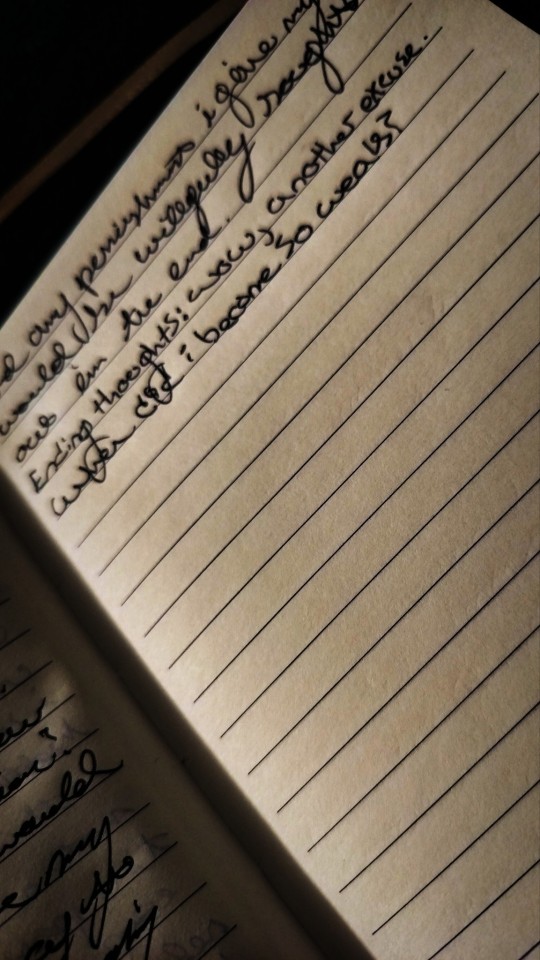 d any punishments i give my
would be willfully sought
out in the end.
Ending thoughts: wow, another excuse.
when did i become so weak?
would
my